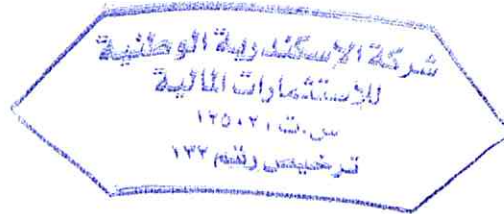 شركة الإسكندرية الوطنية
للإستثمارات المالية
س.ت ١٢٥٠٢١
ترخيص رقم ١٣٢